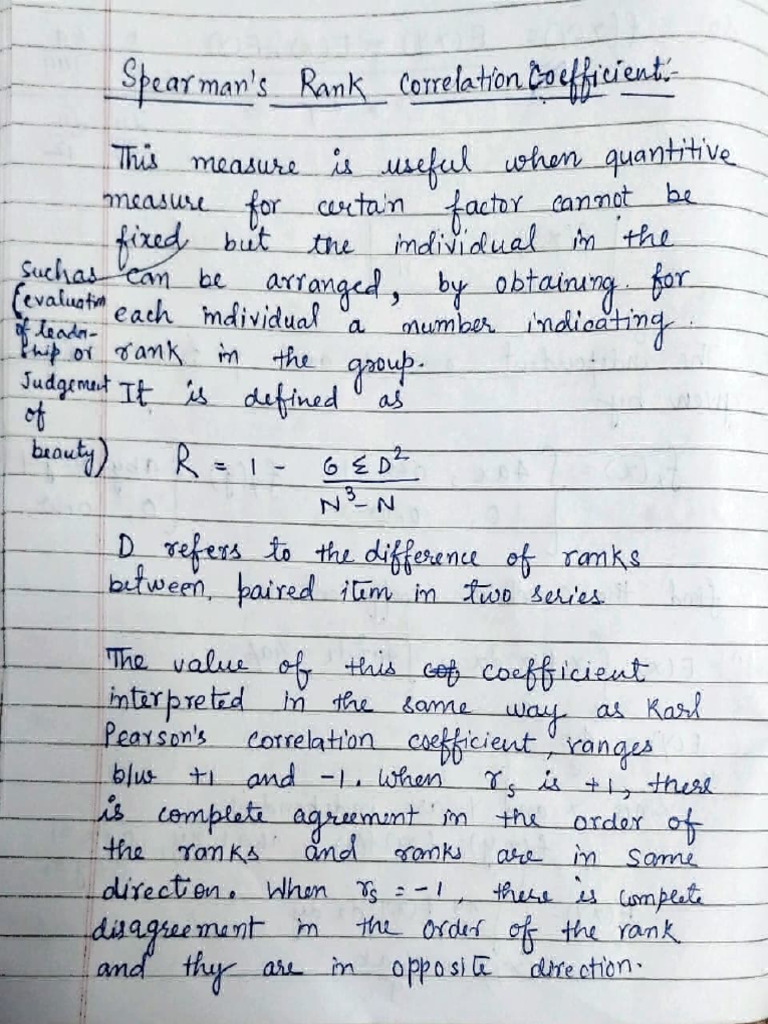 Spearman's Rank Correlation Coefficient:-
This measure is useful when quantitive
measure for certain factor cannot be
fixed but the individual in the
can be arranged, by obtaining for
each individual a number indicating
rank in the group.
such as
(evaluation
of leader-
ship or
Judgement
of
beauty)
It is defined as
R = 1 - 6 Σ D²
N³-N
D refers to the difference of ranks
between, paired item in two series
The value of this cof coefficient
interpreted in the same way as Karl
Pearson's correlation coefficient, ranges
b/w +1 and -1. When rₛ is +1, there
is complete agreement in the order of
the ranks and ranks are in same
direction. When rₛ = -1, there is complete
disagreement in the order of the rank
and thy are in opposite direction.